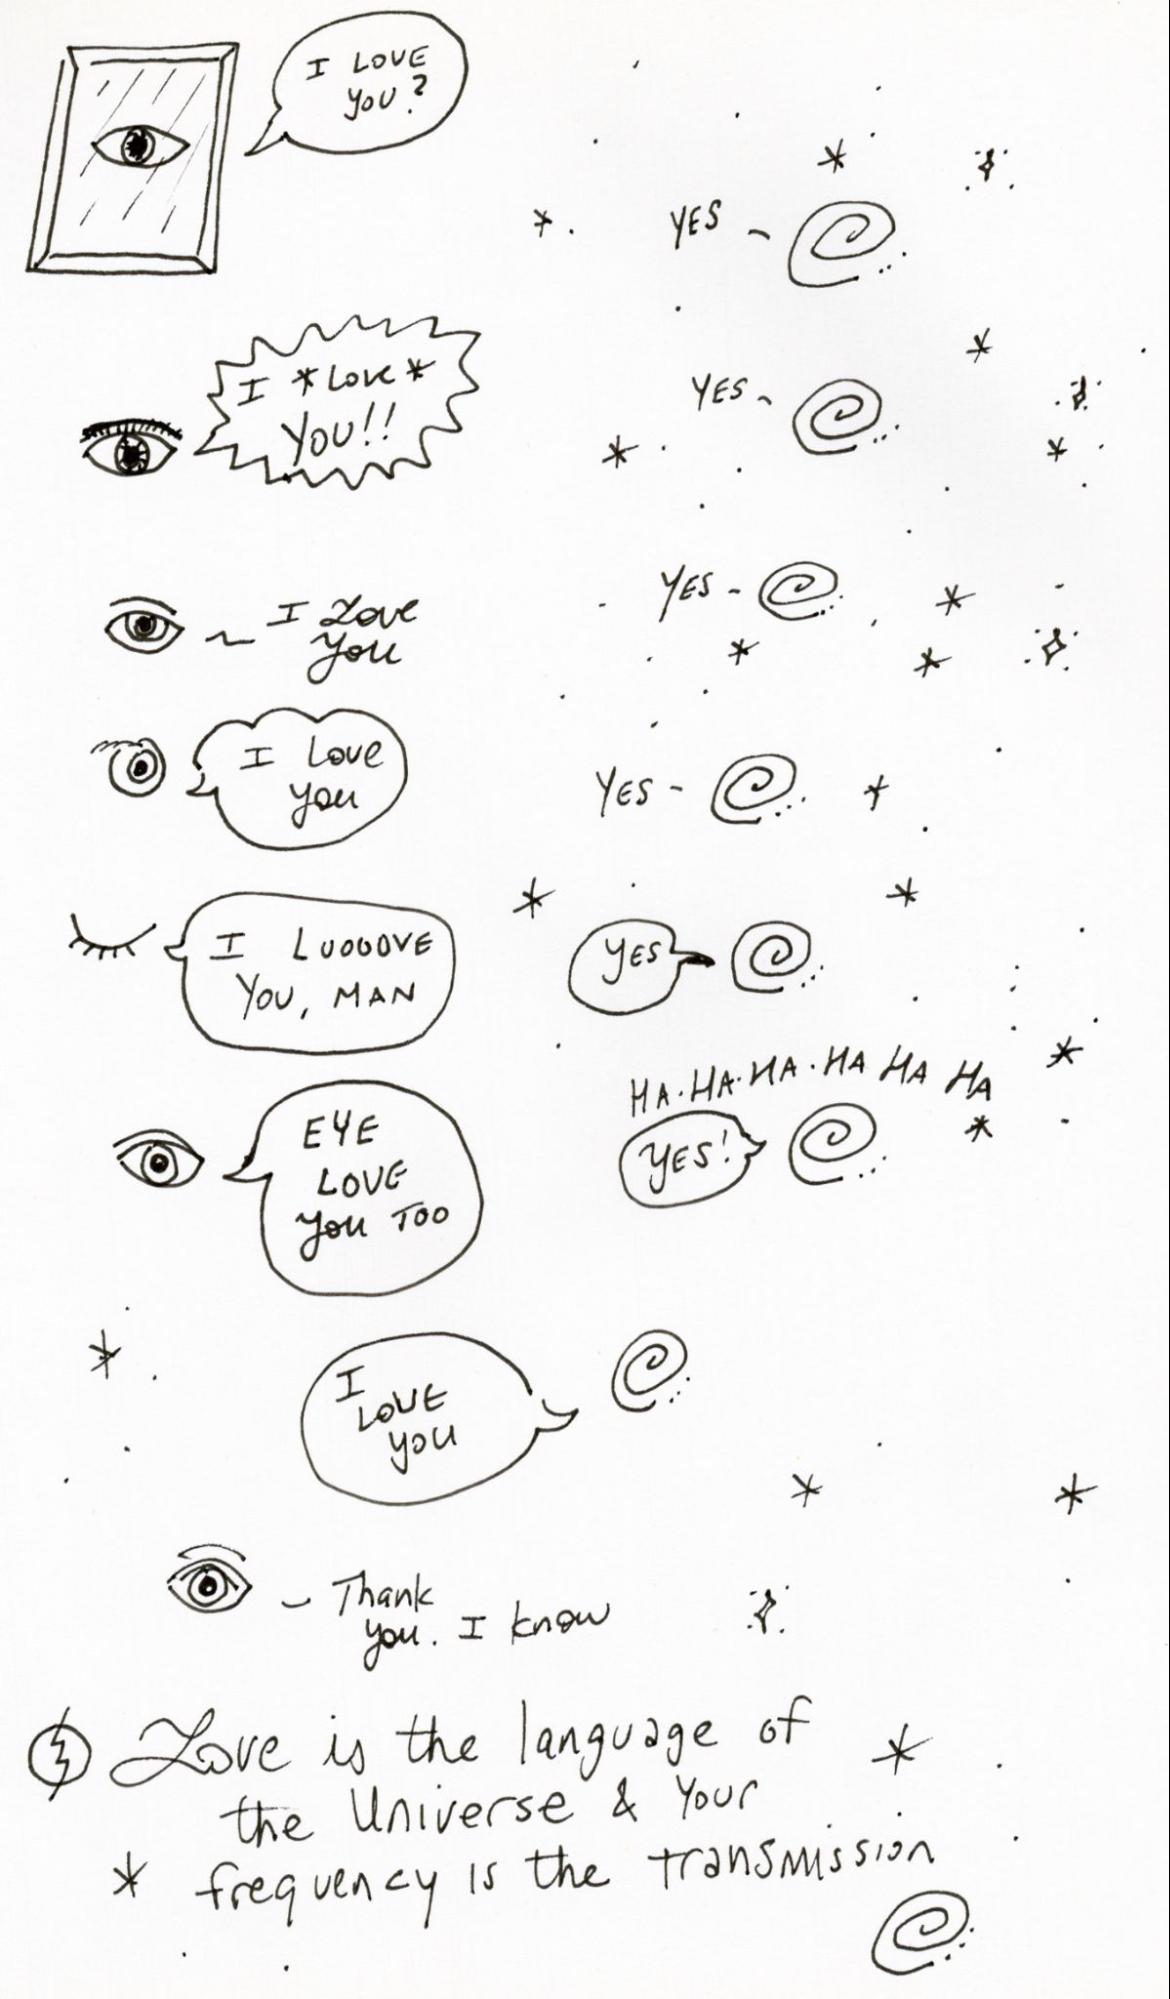 I LOVE
YOU?
YES ~
I *Love*
YOU!!
YES ~
~ I Love
You
YES -
I Love
you
YES -
I LUOOOVE
YOU, MAN
YES
HA·HA·HA·HA HA HA
EYE
LOVE
you TOO
YES!
I
LOVE
you
~ Thank
you. I know
Love is the language of
the Universe & Your
frequency is the transmission